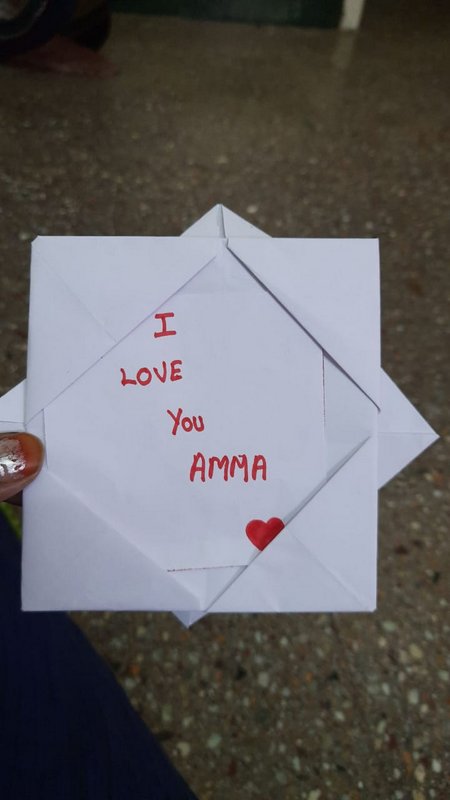 I
LOVE
You
AMMA